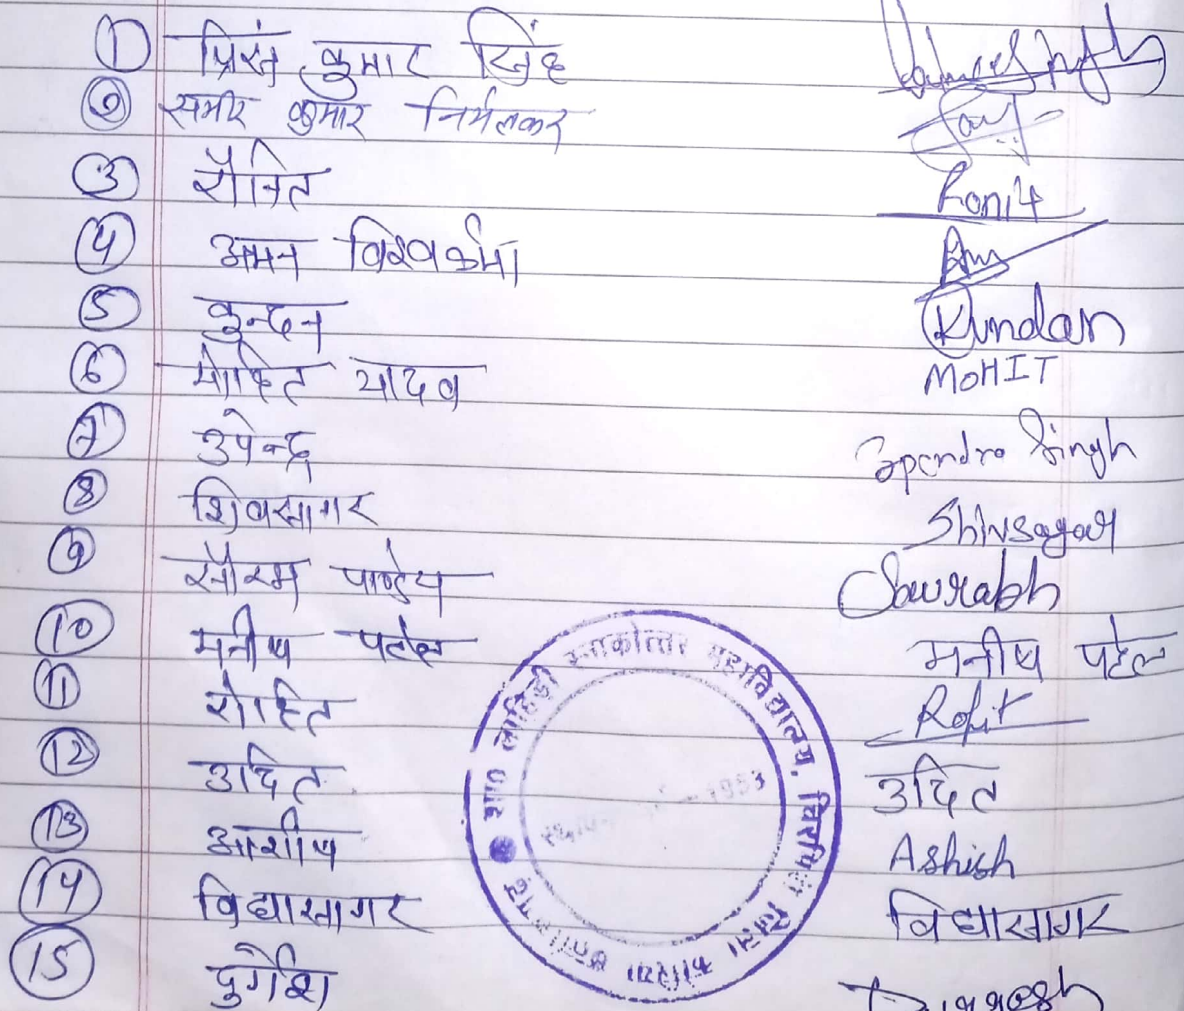 1 प्रिंस कुमार सिंह
2 समीर कुमार निर्मलकर
3 रौनित Ronit
4 अमन विश्वकर्मा
5 कुन्दन Kundan
6 मोहित यादव MOHIT
7 उपेन्द्र Upendra Singh
8 शिवसागर Shivsagar
9 सौरभ पाण्डेय Sourabh
10 मनीष पटेल मनीष पटेल
11 रोहित Rohit
12 उदित उदित
13 आशीष Ashish
14 विद्यासागर विद्यासागर
15 दुर्गेश Durgesh
शास० लाहिडी स्नाकोत्तर महाविद्यालय, चिरमिरी जिला कोरिया छत्तीसगढ़
स्थापना - 1983